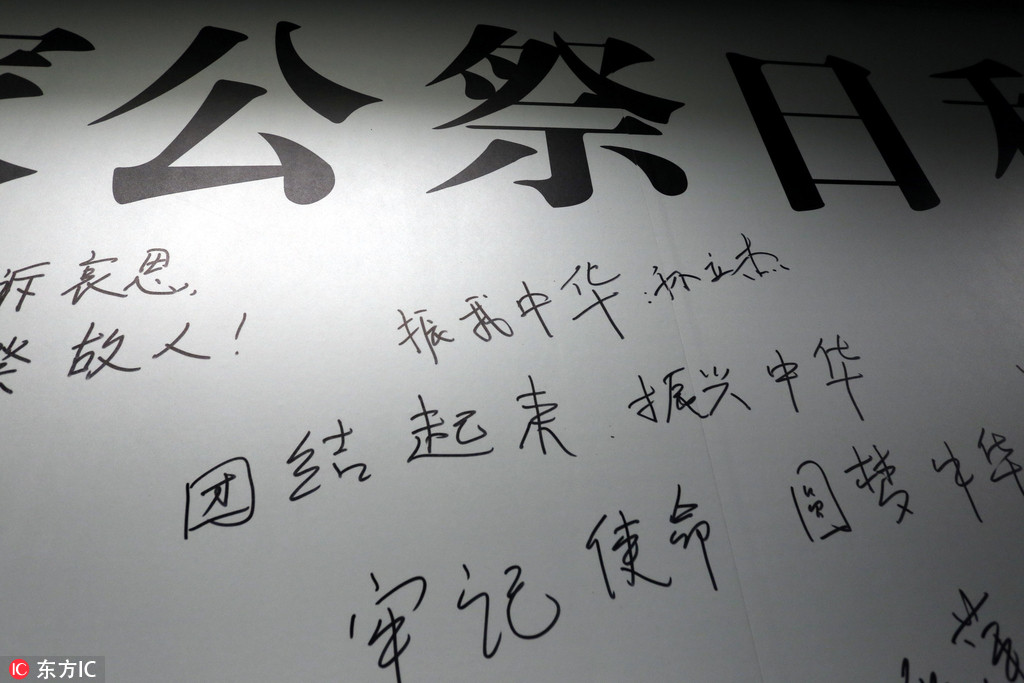 公祭日
哀思
故人！
振我中华 孙立杰
团结起来 振兴中华
牢记使命 圆梦中华
东方IC